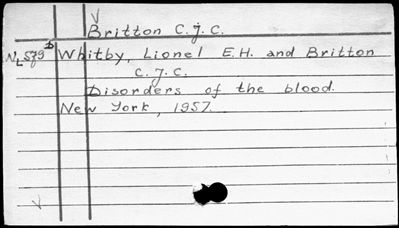 Britton C.J.C.
Whitby, Lionel E.H. and Britton
C.J.C.
Disorders of the blood.
New York, 1957.